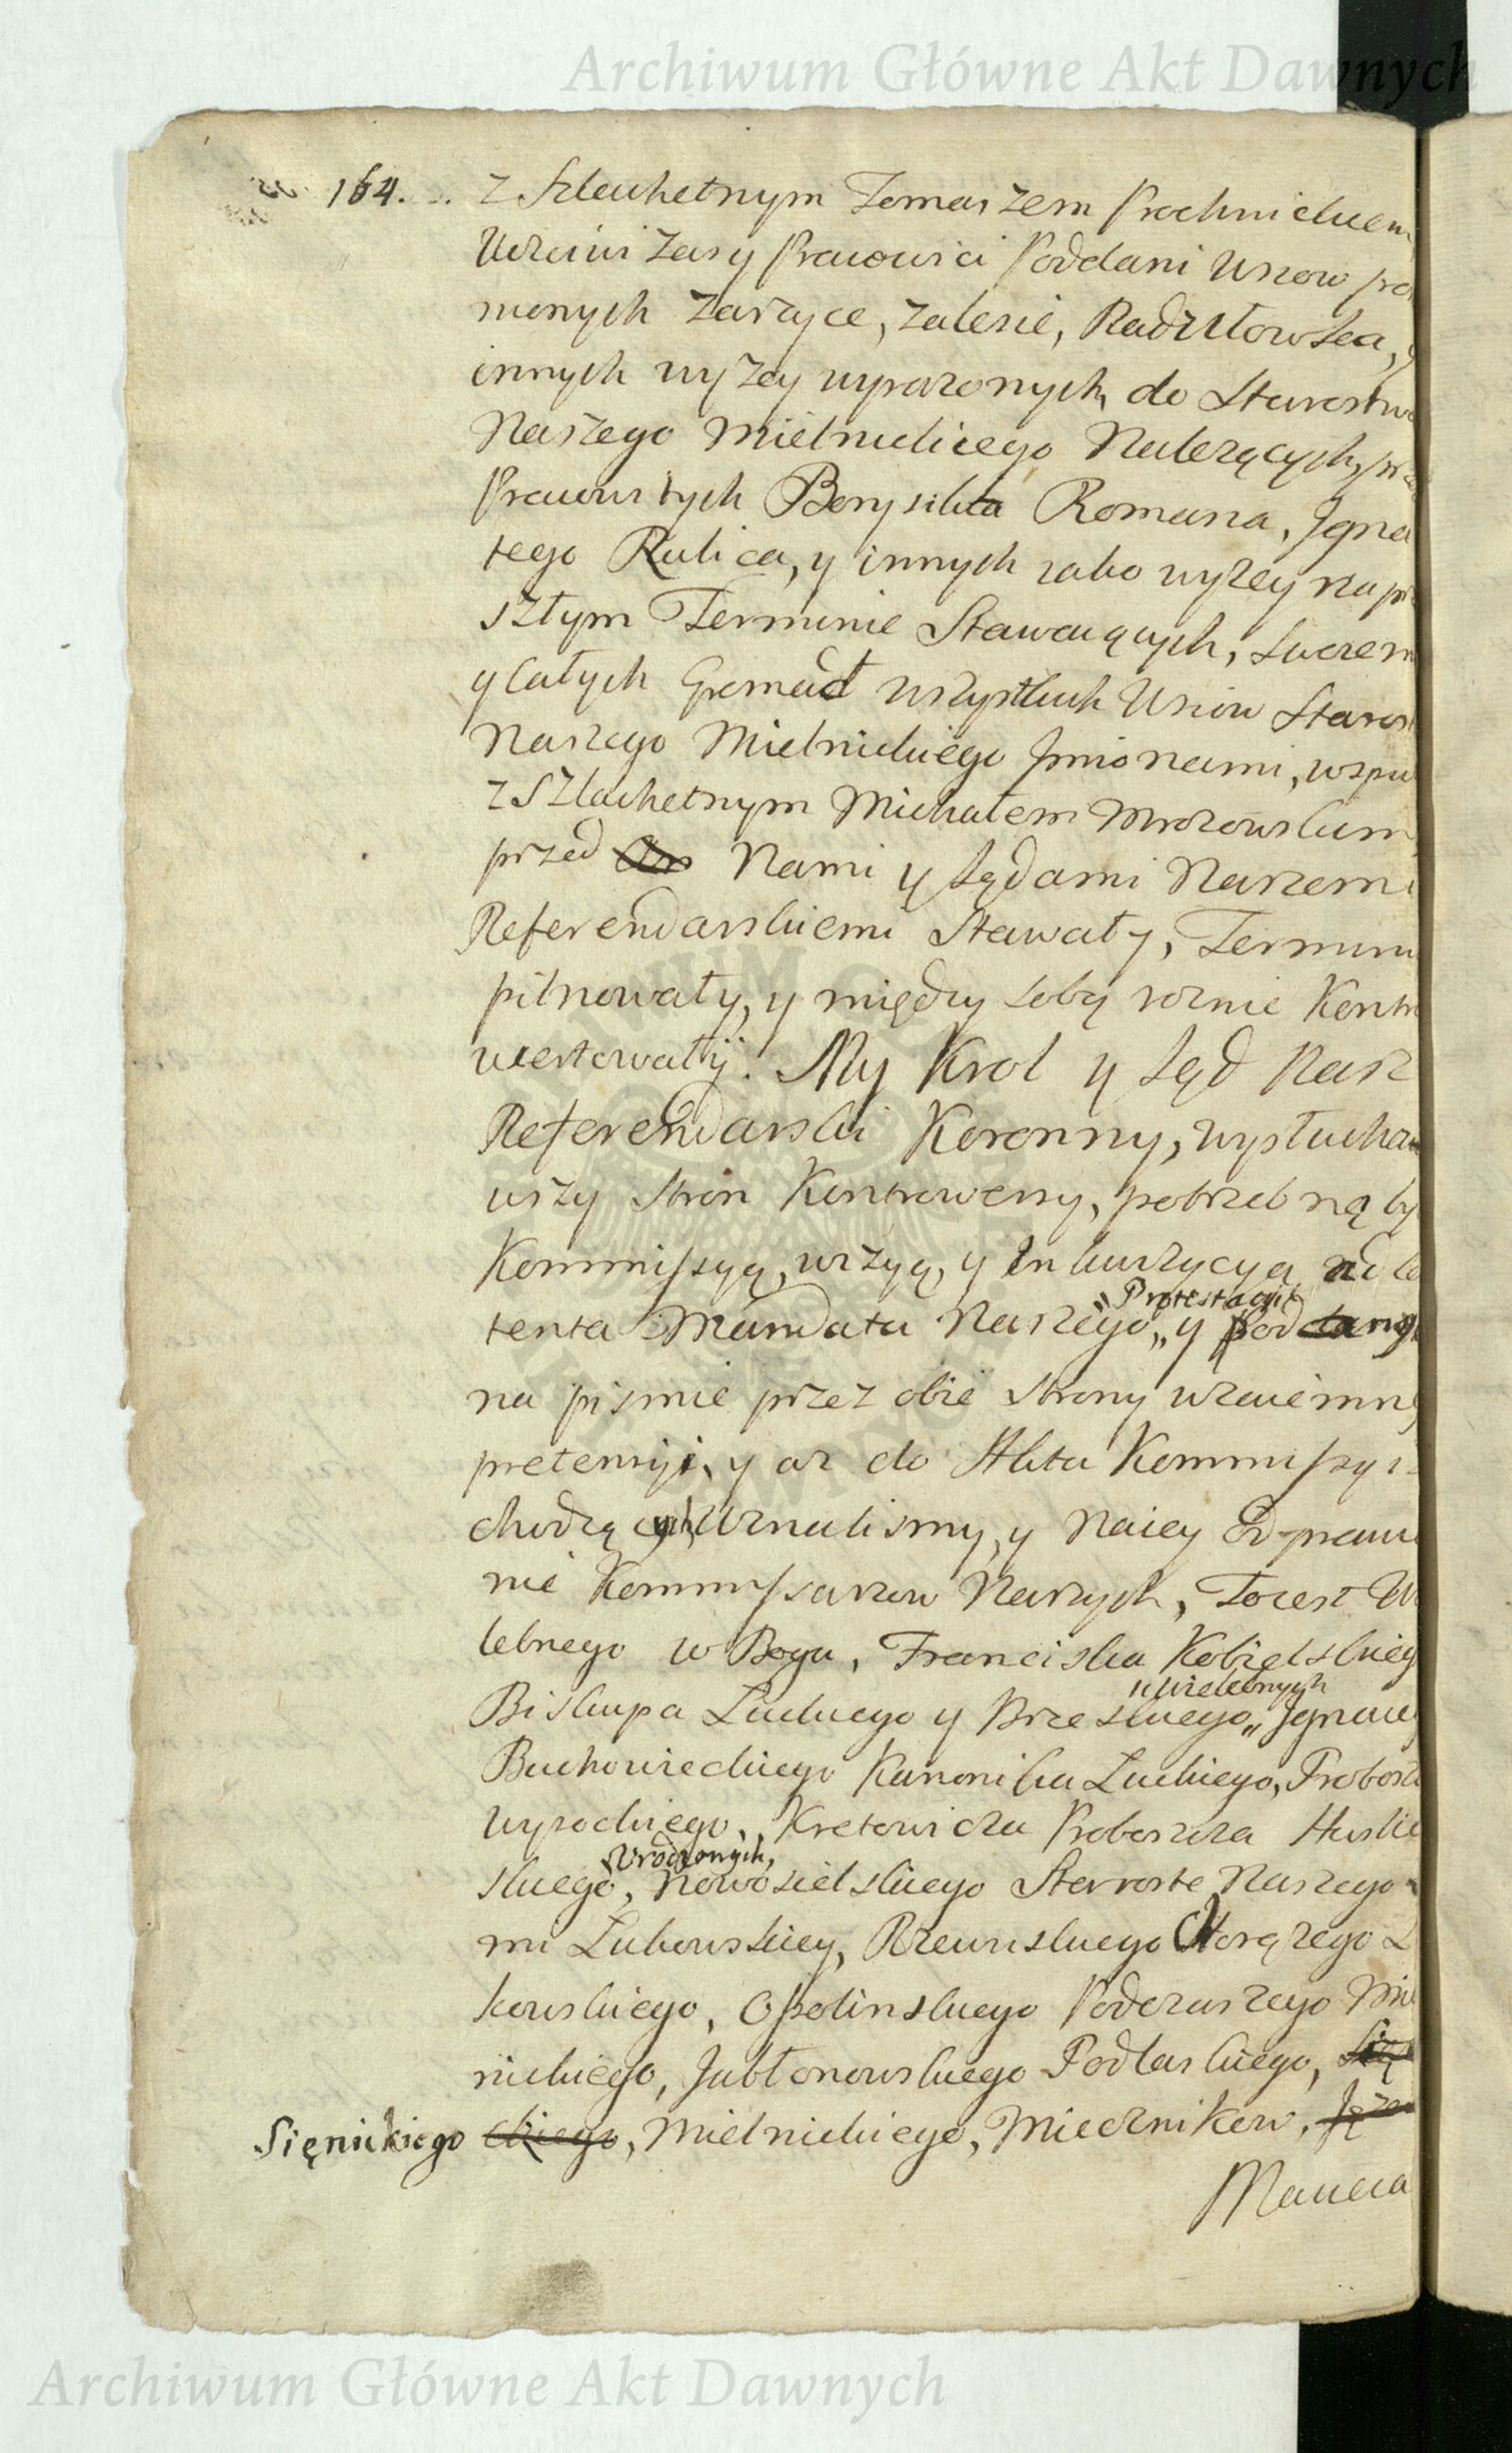 Archiwum Główne Akt Dawnych
164. z Szlachetnym Tomaszem Prochnickiem
Uczciwi zasy Pracowici Poddani Wsiow
mienych Zarzyce, Zalesie, Radziłowska, y
innych wyżey wyrażonych, do Starostwa
Naszego Mielnickiego Należących,
Pracowitych Borysiuka Romana, Igna
tego Kulica, y innych iako wyżey na pr
szłym Terminie Stawaiących, swoiem
y Całych Gromad wszystkich Wsiow Staros
Naszego Mielnickiego Jmionami, wspu
z Szlachetnym Michałem Mrozowskim
przed Nami y Sądami Naszemi
Referendarskiemi Stawały, Terminu
pilnowały, y między sobą roznie Kontr
wertowały. My Krol y Sąd Nasz
Referendarski Koronny, wysłuchaw
wszy Stron Kontrowersy, potrzebną by
Kommissyą, wizyą, y Inkwizycyą ad
tenta Mandatu Naszego „ y podanych
„ Protestacyi
na pismie przez obie Strony wzaiemnej
pretensyi, y az do Aktu Kommissyi
chodzących Uznalismy, y Naiey Odprawie
nie Kommissarzow Naszych, Toiest W
lebnego w Bogu, Franciszka Kobielskiego
Biskupa Luckiego y Brzeskiego „ Jgnace
„ Wielebnych
Buchowieckiego Kanonika Luckiego, Probosz
wysockiego, Kretowicza Proboszcza Huslie
skiego, Nowosielskiego Staroste Naszego
Urodzonych,
mi Lukowskiey, Rzewuskiego Chorązego L
kowskiego, Opolinskiego Podczaszego Miel
nickiego, Jabłonowskiego Podlaskiego, Się
Sięnickiego ckiego, Mielnickiego, Miecznikow,
Archiwum Główne Akt Dawnych